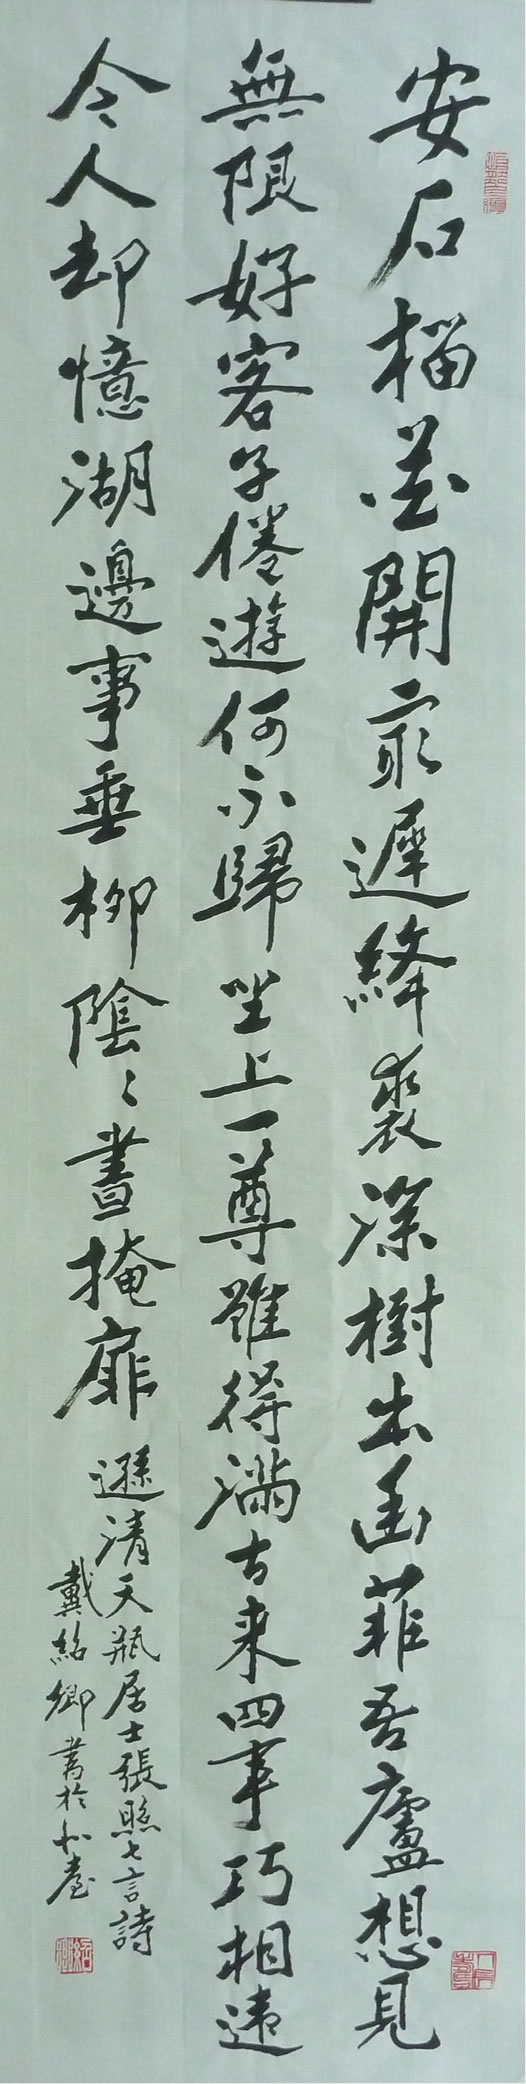 安石榴花開最遲絳裠深樹出幽菲吾廬想見
無限好客子倦遊何不歸坐上一尊雖得滿古来四事巧相違
令人却憶湖邊事垂柳陰〻晝掩扉
遜清天瓶居士張照七言詩
戴紹卿書於